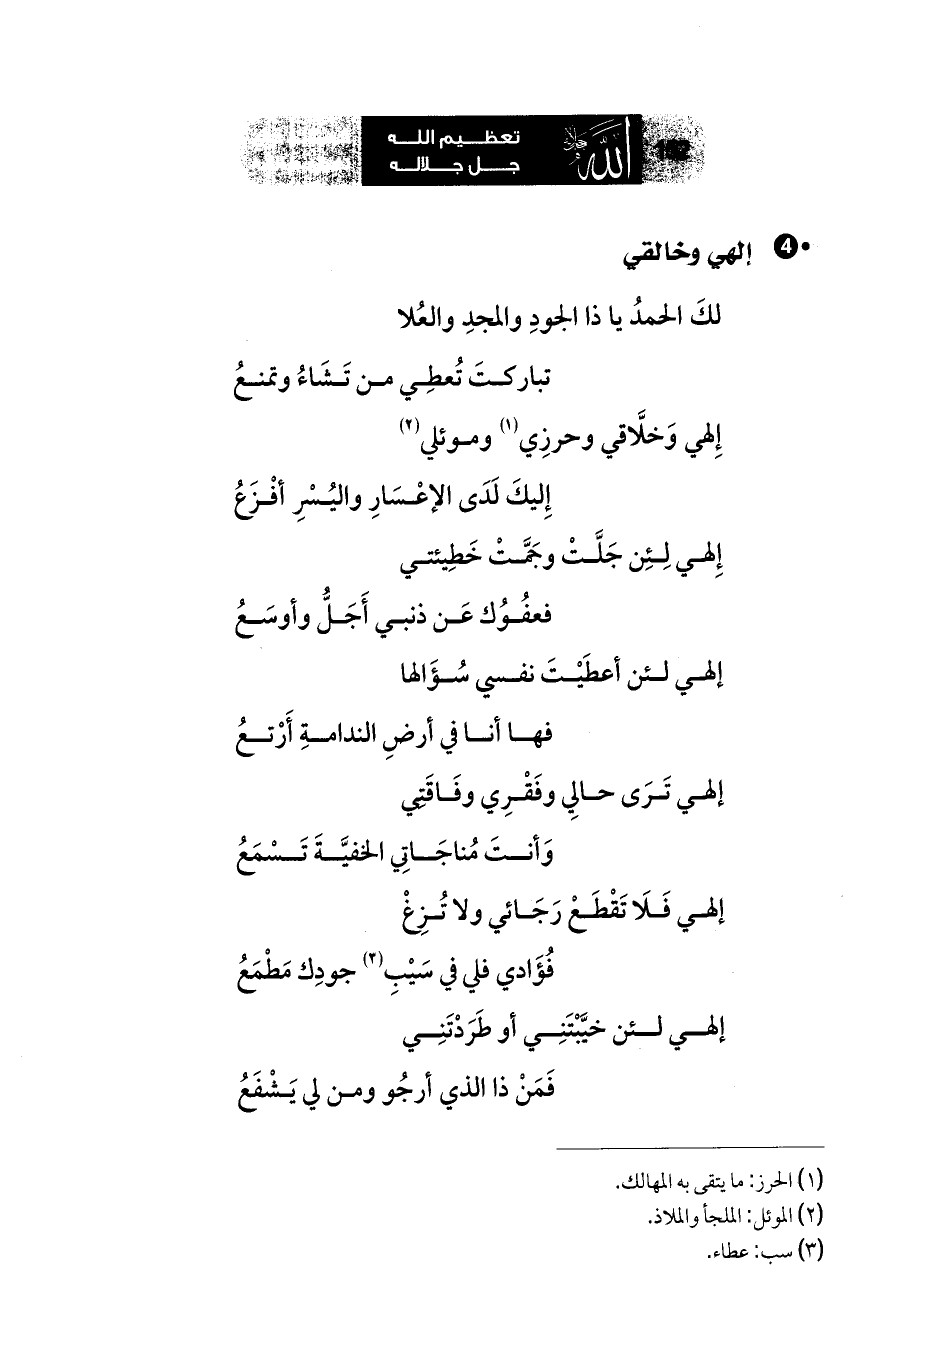 تعظيم الله
جل جلاله
الله جل جلاله
•4 إلهي وخالقي
لكَ الحمدُ يا ذا الجودِ والمجدِ والعُلا
تباركتَ تُعطِي من تَشَاءُ وتمنعُ
إِلهي وَخلَّاقي وحرزِي(١) وموئلي(٢)
إِليكَ لَدَى الإعْسَارِ واليُسْرِ أفْزَعُ
إِلهي لِئِن جَلَّتْ وجَمَّتْ خَطِيئتي
فعفُوُك عَن ذنبي أَجَلُّ وأوسَعُ
إلهي لئن أعطَيْتَ نفسي سُؤَالها
فها أنا في أرضِ الندامةِ أَرْتعُ
إلهي تَرَى حالِي وفَقْرِي وفَاقَتِي
وَأنتَ مُناجَاتِي الخفيَّةَ تَسْمَعُ
إلهي فَلَا تَقْطَعْ رَجَائي ولا تُزِغْ
فُؤَادي فلي في سَيْبِ(٣) جودِك مَطْمَعُ
إلهي لئن خيَّبْتَنِي أو طَرَدْتَنِي
فَمَنْ ذا الذي أرجُو ومن لي يَشْفَعُ
(١) الحرز: ما يتقى به المهالك.
(٢) الموئل: الملجأ والملاذ.
(٣) سب: عطاء.